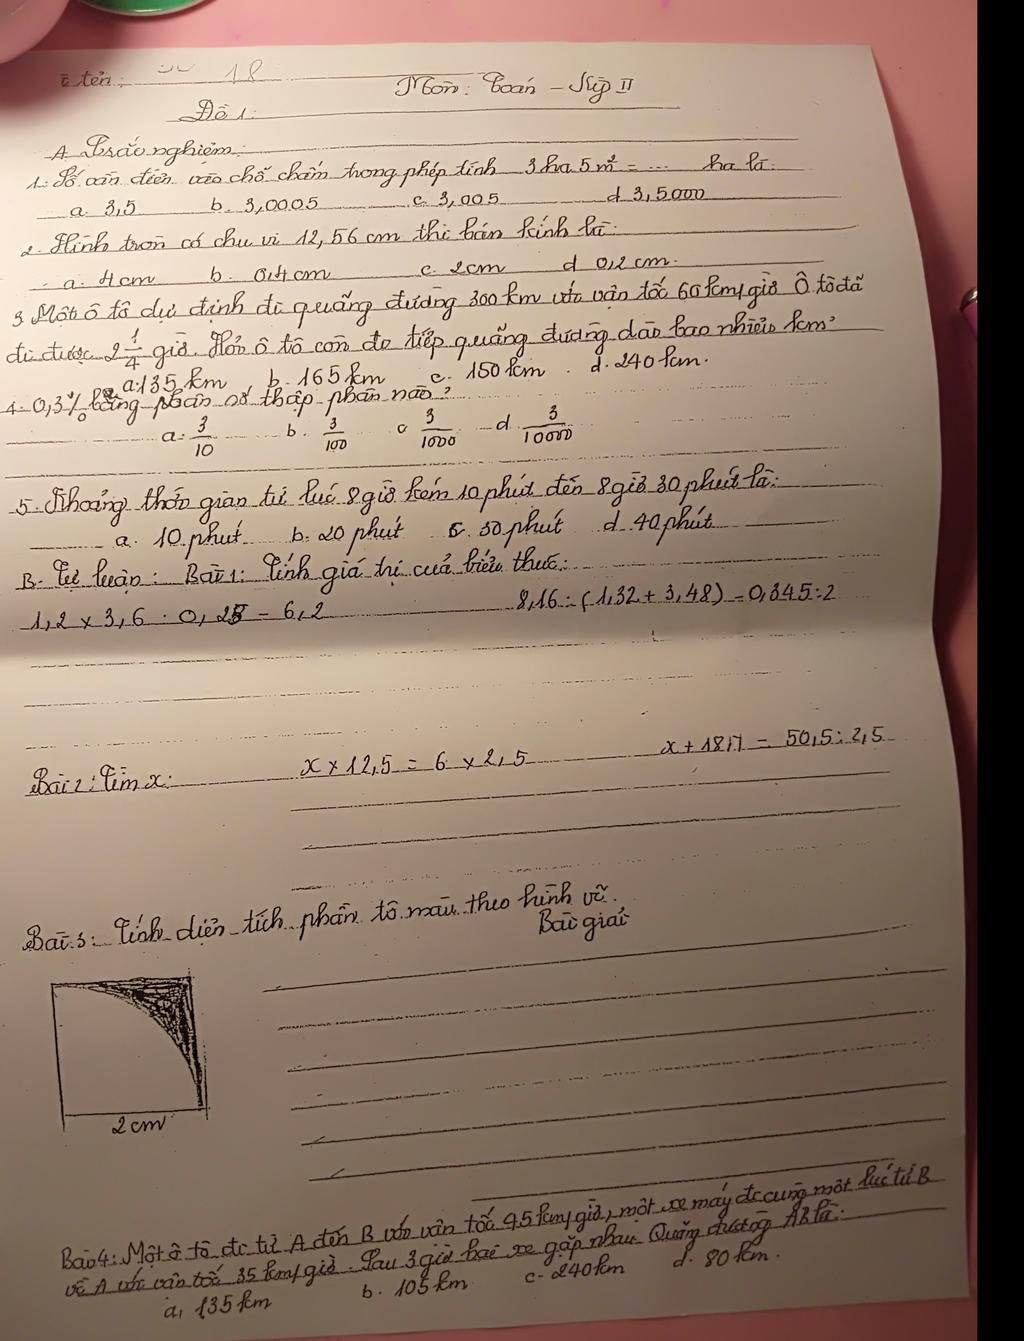 ê tên: 18
Môn: Toán - Kỳ II
Đề 1:
A. Trắc nghiệm:
1. Số cần điền vào chỗ chấm trong phép tính 3 ha 5 m² = ... ha là:
a. 3,5 b. 3,0005 c. 3,005 d 3,5000
2. Hình tròn có chu vi 12,56 cm thì bán kính là:
a. 4cm b. 0,4cm c. 2cm d 0,2 cm.
3. Một ô tô dự định đi quãng đường 300 km với vận tốc 60 km/giờ Ô tô đã
đi được 2 1/4 giờ. Hỏi ô tô còn đi tiếp quãng đường dài bao nhiêu km?
a. 135 km b. 165 km c. 150 km. d. 240 km.
4. 0,3% bằng phân số thập phân nào?
a. 3/10 b. 3/100 c 3/1000 d. 3/10000
5. Khoảng thời gian từ lúc 8 giờ kém 10 phút đến 8 giờ 30 phút là:
a. 10 phút b. 20 phút c. 30 phút d. 40 phút
B. Tự luận: Bài 1: Tính giá trị của biểu thức:
1,2 x 3,6 : 0,25 - 6,2 8,16 : (1,32 + 3,48) - 0,345 : 2
Bài 2: Tìm x: x x 12,5 = 6 x 2,5 x + 18,7 = 50,5 : 2,5
Bài 3: Tính diện tích phần tô màu theo hình vẽ.
Bài giải
2 cm
Bài 4: Một ô tô đi từ A đến B với vận tốc 45 km/giờ, một xe máy đi cùng một lúc từ B
về A với vận tốc 35 km/giờ. Sau 3 giờ hai xe gặp nhau. Quãng đường AB là:
a, 135 km b. 105 km c. 240 km d. 80 km.